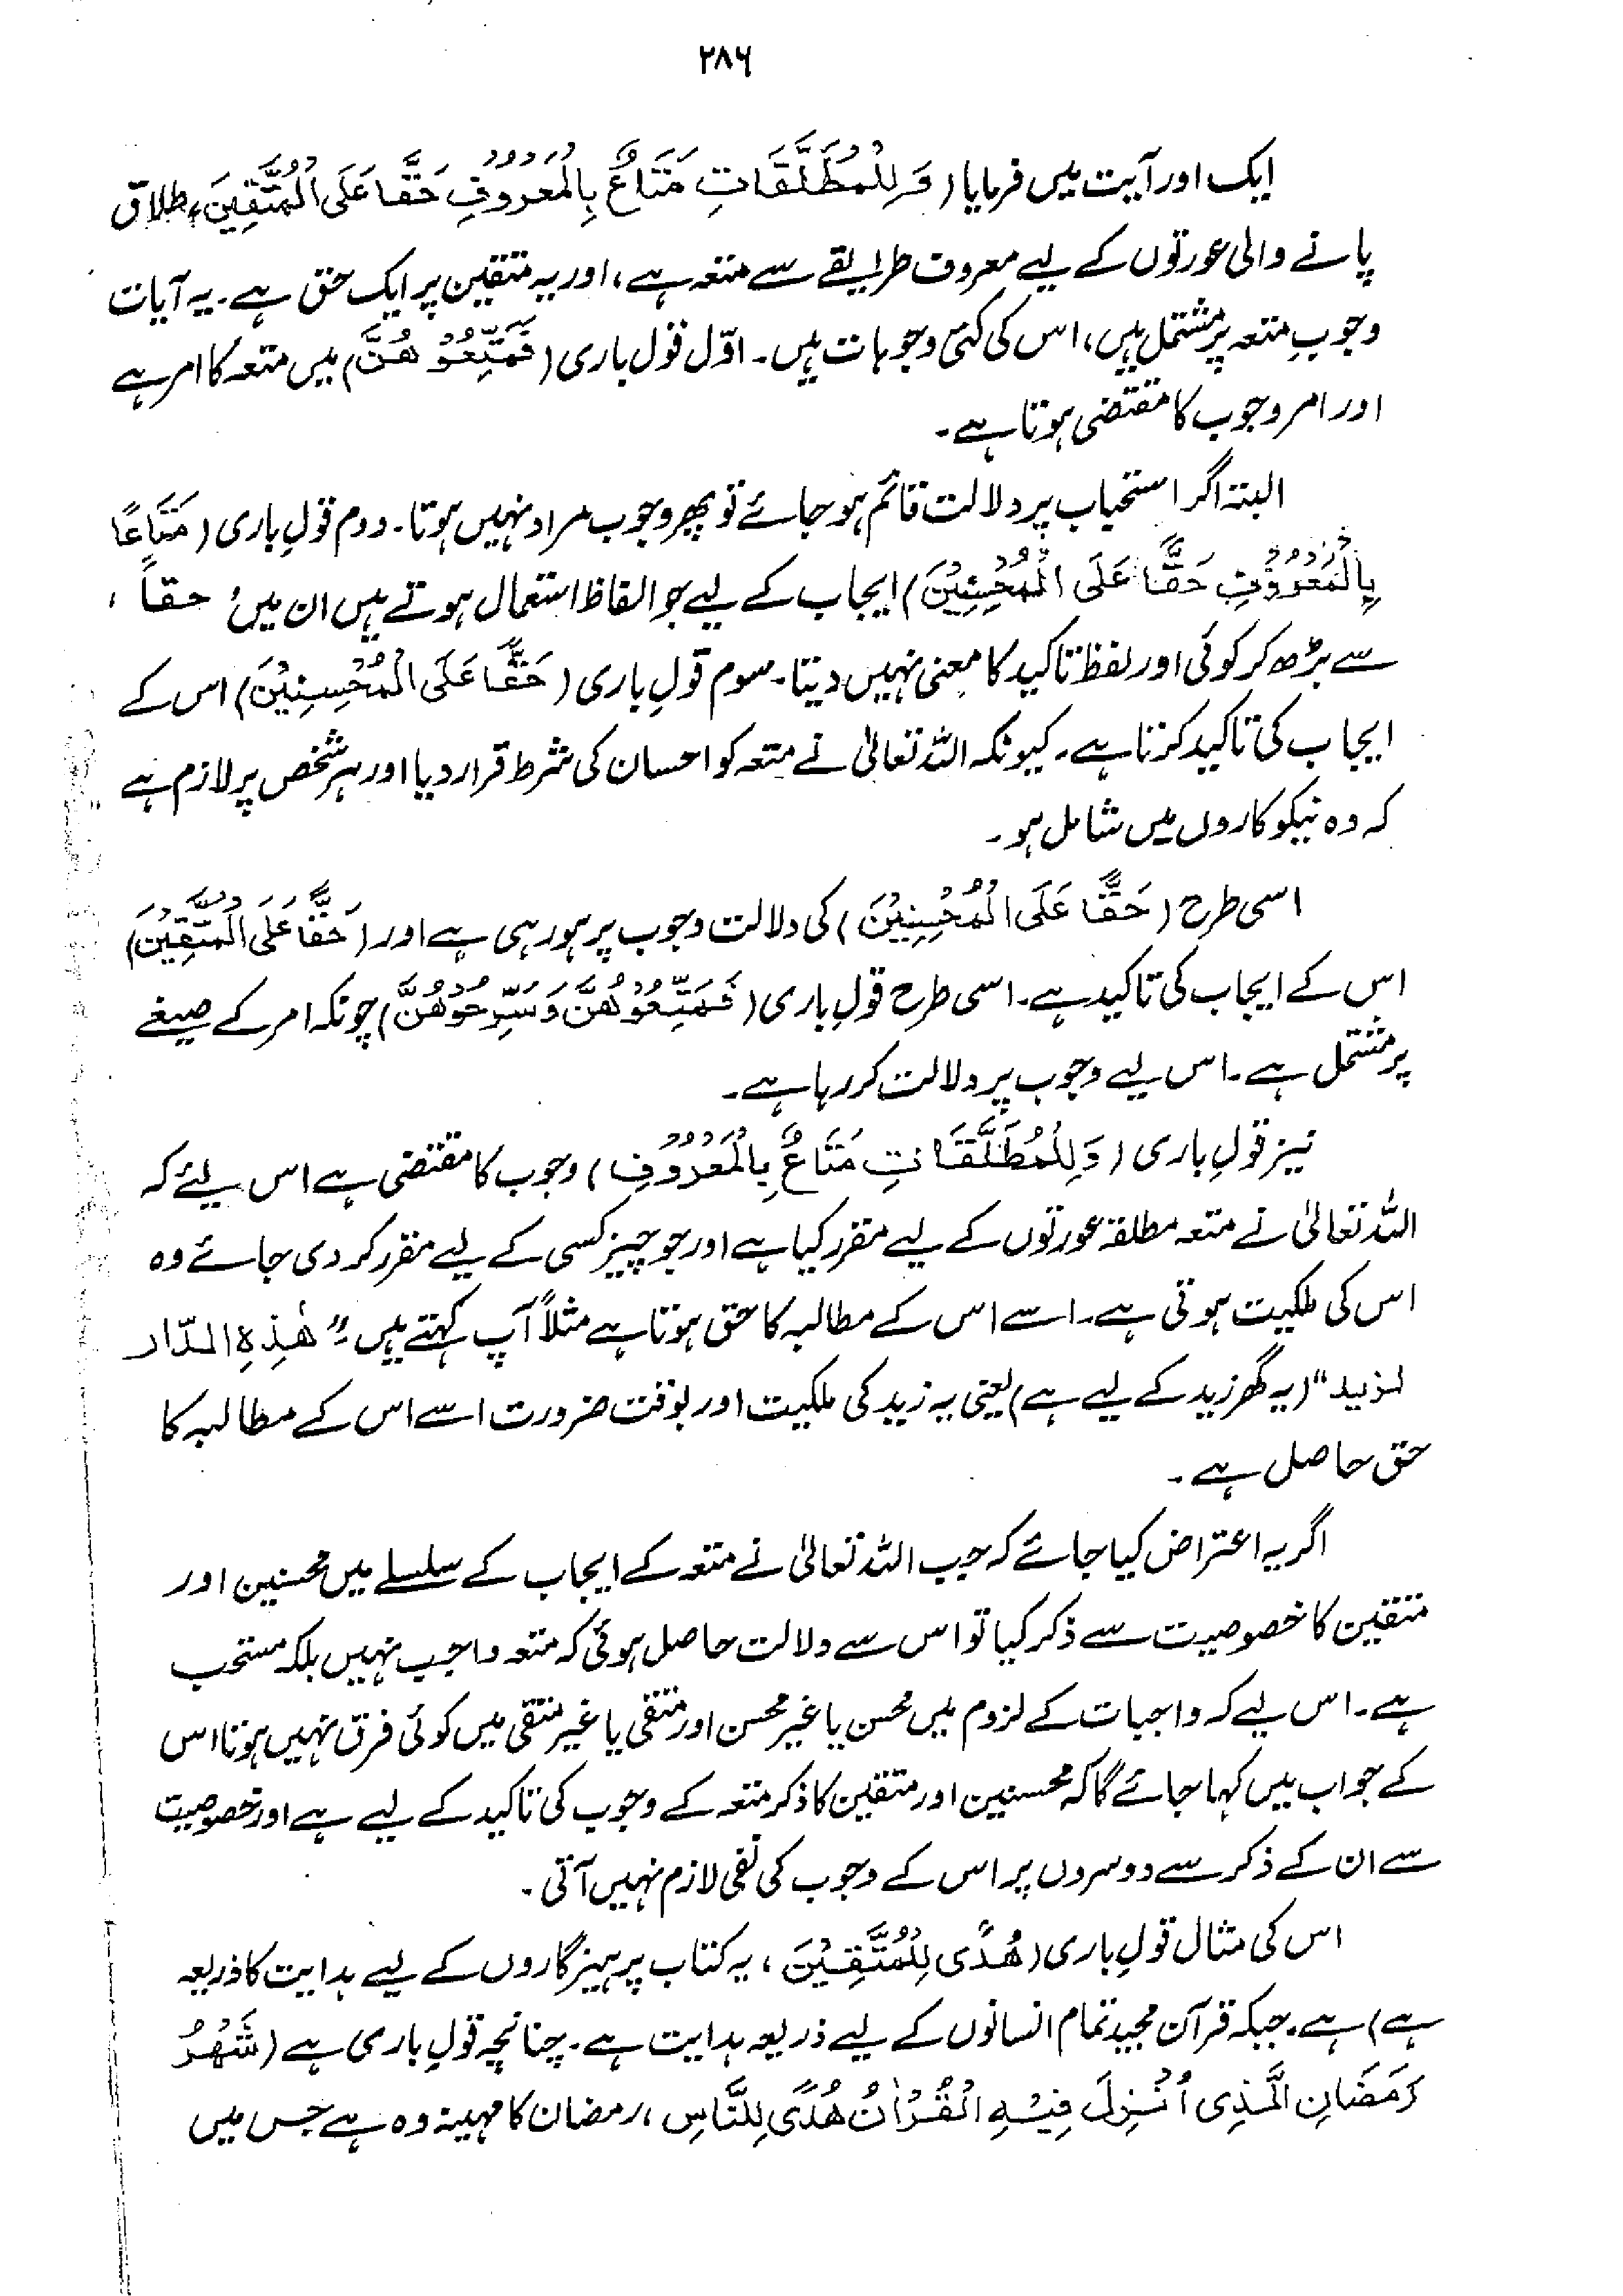 ۲۸۶
ایک اور آیت میں فرمایا (وَلِلْمُطَلَّقَاتِ مَتَاعٌ بِالْمَعْرُوْفِ حَقًّا عَلَى الْمُتَّقِيْنَ، طلاق
پانے والی عورتوں کے لیے معروف طریقے سے متعہ ہے، اور یہ متقین پر ایک حق ہے۔ یہ آیات
وجوبِ متعہ پر مشتمل ہیں، اس کی کئی وجوہات ہیں۔ اوّل قول باری (فَمَتِّعُوْهُنَّ) میں متعہ کا امر ہے
اور امر وجوب کا مقتضی ہوتا ہے۔
البتہ اگر استحباب پر دلالت قائم ہو جائے تو پھر وجوب مراد نہیں ہوتا۔ دوم قولِ باری (مَتَاعًا
بِالْمَعْرُوْفِ حَقًّا عَلَى الْمُحْسِنِيْنَ) ایجاب کے لیے جو الفاظ استعمال ہوتے ہیں ان میں ' حقاً '
سے بڑھ کر کوئی اور لفظ تاکید کا معنی نہیں دیتا۔ سوم قولِ باری (حَقًّا عَلَى الْمُحْسِنِيْنَ) اس کے
ایجاب کی تاکید کرتا ہے۔ کیونکہ اللہ تعالیٰ نے متعہ کو احسان کی شرط قرار دیا اور ہر شخص پر لازم ہے
کہ وہ نیکوکاروں میں شامل ہو۔
اسی طرح (حَقًّا عَلَى الْمُحْسِنِيْنَ) کی دلالت وجوب پر ہو رہی ہے اور (حَقًّا عَلَى الْمُتَّقِيْنَ)
اس کے ایجاب کی تاکید ہے۔ اسی طرح قولِ باری (فَمَتِّعُوْهُنَّ وَسَرِّحُوْهُنَّ) چونکہ امر کے صیغے
پر مشتمل ہے۔ اس لیے وجوب پر دلالت کر رہا ہے۔
نیز قولِ باری (وَلِلْمُطَلَّقَاتِ مَتَاعٌ بِالْمَعْرُوْفِ) وجوب کا مقتضی ہے اس لیئے کہ
اللہ تعالیٰ نے متعہ مطلقہ عورتوں کے لیے مقرر کیا ہے اور جو چیز کسی کے لیے مقرر کر دی جائے وہ
اس کی ملکیت ہوتی ہے۔ اسے اس کے مطالبہ کا حق ہوتا ہے مثلاً آپ کہتے ہیں "هٰذِهِ الدّار
لزید" (یہ گھر زید کے لیے ہے) یعنی یہ زید کی ملکیت اور بوقت ضرورت اسے اس کے مطالبہ کا
حق حاصل ہے۔
اگر یہ اعتراض کیا جائے کہ جب اللہ تعالیٰ نے متعہ کے ایجاب کے سلسلے میں محسنین اور
متقین کا خصوصیت سے ذکر کیا تو اس سے دلالت حاصل ہوئی کہ متعہ واجب نہیں بلکہ مستحب
ہے۔ اس لیے کہ واجبات کے لزوم میں محسن یا غیر محسن اور متقی یا غیر متقی میں کوئی فرق نہیں ہوتا اس
کے جواب میں کہا جائے گا کہ محسنین اور متقین کا ذکر متعہ کے وجوب کی تاکید کے لیے ہے اور خصوصیت
سے ان کے ذکر سے دوسروں پر اس کے وجوب کی نفی لازم نہیں آتی۔
اس کی مثال قولِ باری (هُدًى لِلْمُتَّقِيْنَ، یہ کتاب پرہیزگاروں کے لیے ہدایت کا ذریعہ
ہے) ہے۔ جبکہ قرآن مجید تمام انسانوں کے لیے ذریعہ ہدایت ہے۔ چنانچہ قولِ باری ہے (شَهْرُ
رَمَضَانَ الَّذِى اُنْزِلَ فِيْهِ الْقُرْاٰنُ هُدًى لِلنَّاسِ، رمضان کا مہینہ وہ ہے جس میں